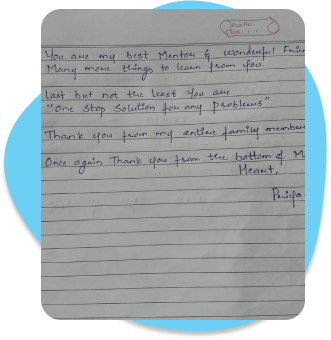 You are my best Mentor & wonderful Frie
Many more things to learn from you.
Last but not the least you are
"One stop solution for any problems"
Thank you from my entire family member
Once again Thank you from the bottom of M
Heart.
Priya